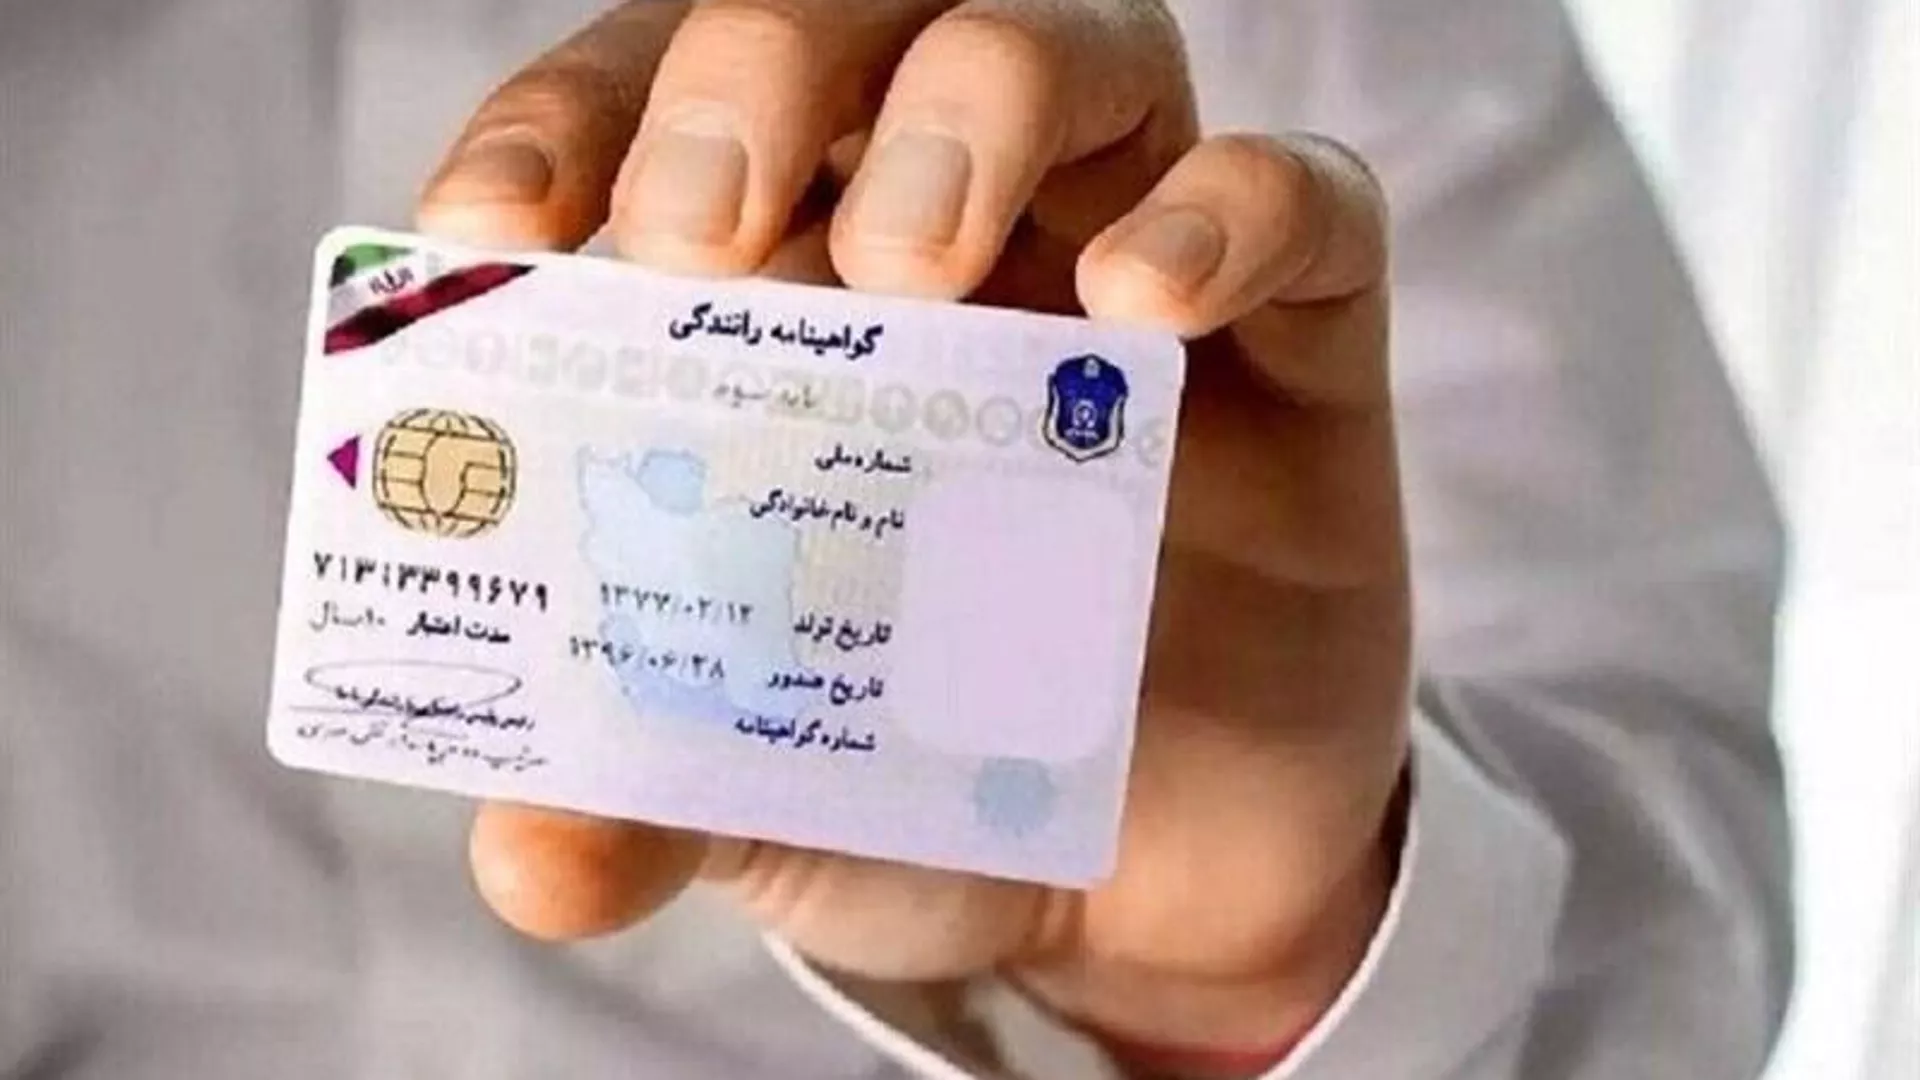 گواهینامه رانندگی
پایه سوم
شماره ملی
نام و نام خانوادگی
تاریخ تولد ۱۳۷۷/۰۲/۱۲
تاریخ صدور ۱۳۹۶/۰۶/۲۸
شماره گواهینامه
۷۱۳۱۳۳۹۹۶۷۹
مدت اعتبار ۱۰سال